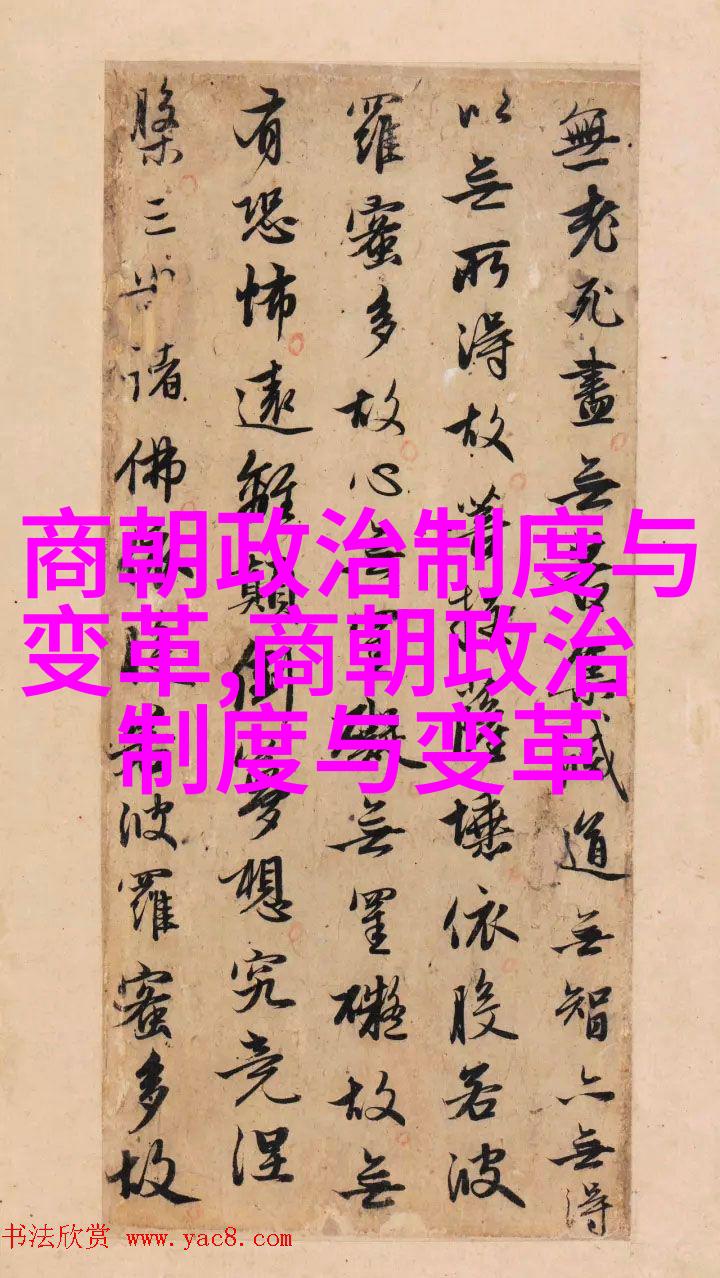 無老死盡無苦集滅道無智亦無得
以無所得故菩提薩埵依般若波
羅蜜多故心無罣礙無罣礙故無
有恐怖遠離顛倒夢想究竟涅
槃三世諸佛依般若波羅蜜多故
商朝政治制度与
变革,商朝政治
制度与变革
书法欣赏 www.yac8.com